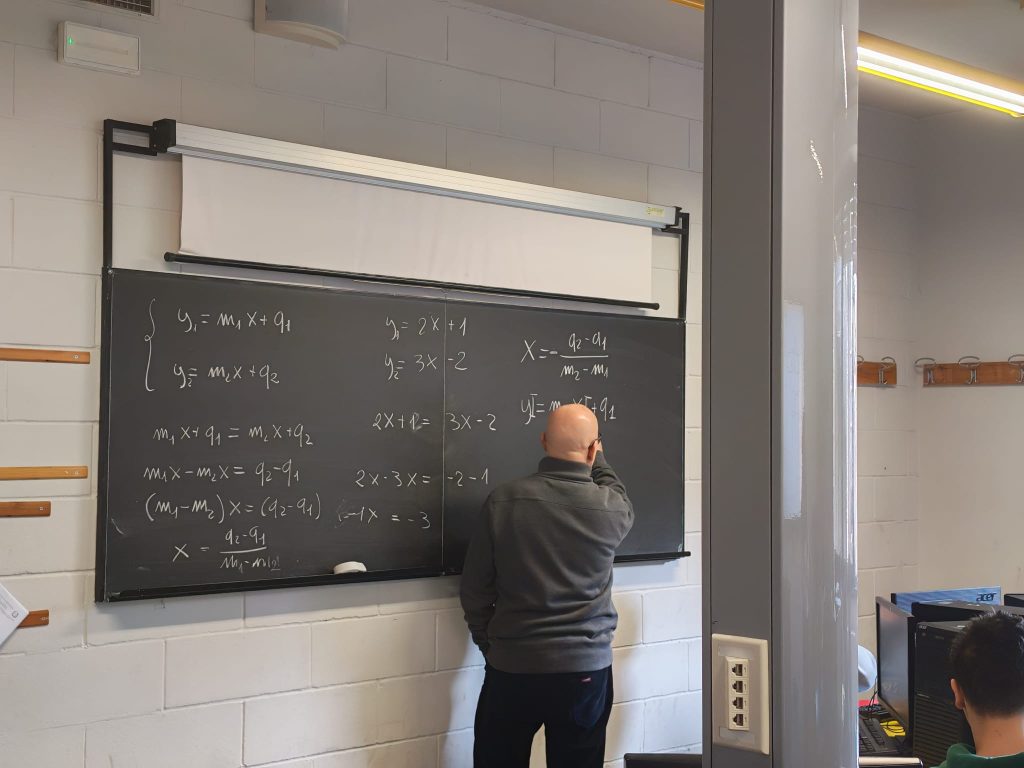 y₁ = m₁ x + q₁
y₂ = m₂ x + q₂
m₁ x + q₁ = m₂ x + q₂
m₁x - m₂x = q₂ - q₁
(m₁ - m₂) x = (q₂ - q₁)
x = (q₂ - q₁) / (m₁ - m₂)
y₁ = 2x + 1
y₂ = 3x - 2
2x + 1 = 3x - 2
2x - 3x = -2 - 1
-1x = -3
X = - (q₂ - q₁) / (m₂ - m₁)
acer